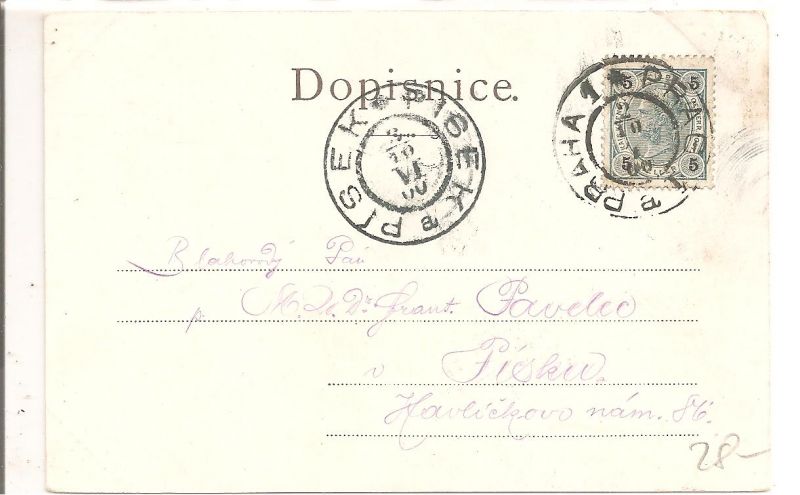 Dopisnice.
PÍSEK PISEK
VI
00
PRAHA 1 PRAG 1
5 5
5 5
Blahorodý Pán
p. M. U. Dr. Frant. Pavelec
v Písku.
Havlíčkovo nám. 86.
28-